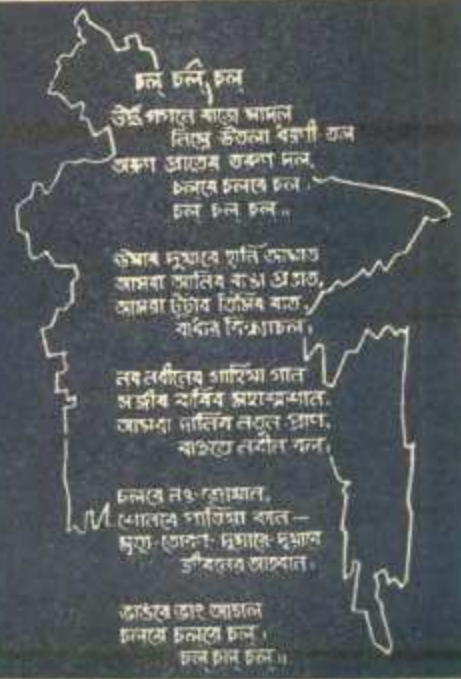 চল্ চল্ চল্
ঊর্দ্ধ গগনে বাজে মাদল
নিম্নে উতলা ধরণী তল
অরুণ প্রাতের তরুণ দল,
চলরে চলরে চল।
চল্ চল্ চল্॥
ঊষার দুয়ারে হানি আঘাত
আমরা আনিব রাঙা প্রভাত,
আমরা টুটাব তিমির রাত,
বাধার বিন্ধ্যাচল।
নব নবীনের গাহিয়া গান
সজীব করিব মহাশ্মশান,
আমরা দানিব নতুন প্রাণ,
বাহুতে নবীন বল।
চলরে নও-জোয়ান,
শোনরে পাতিয়া কান—
মৃত্যু-তোরণ-দুয়ারে-দুয়ারে
জীবনের আহবান।
ভাঙরে ভাঙ আগল
চলরে চলরে চল।
চল্ চল্ চল্॥